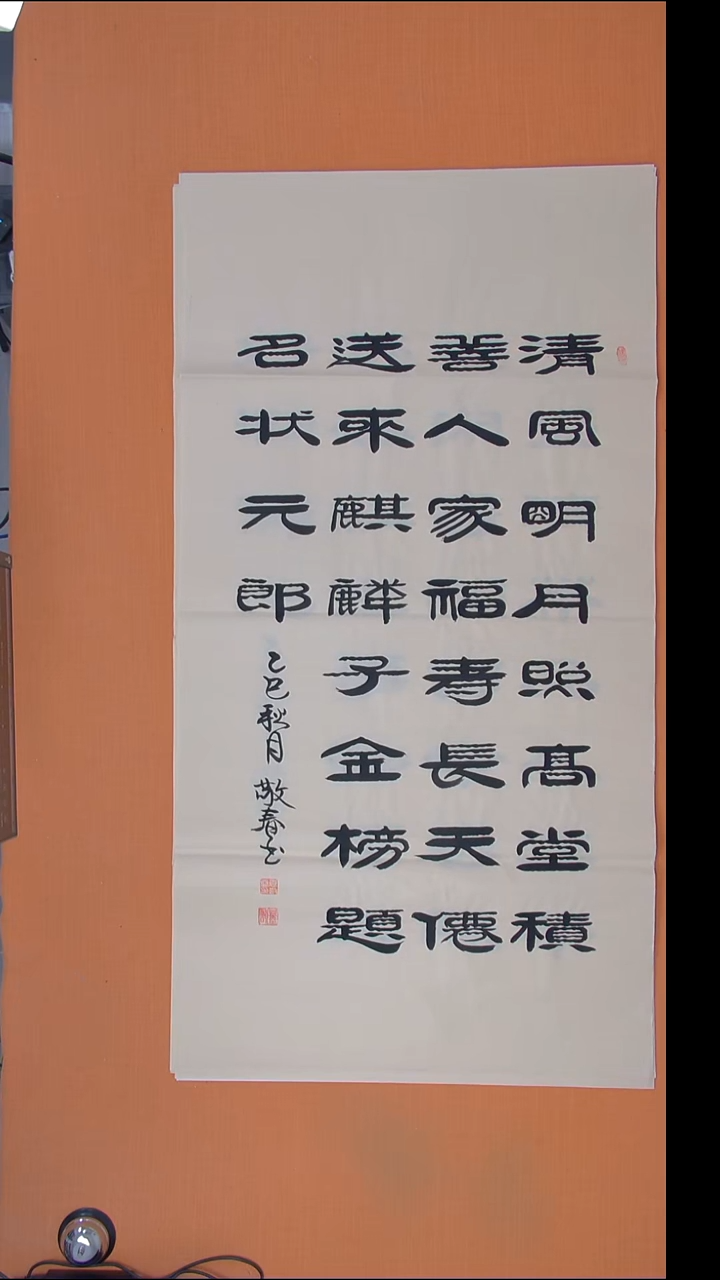 清風明月照高堂積
善人家福寿長天僊
送來麒麟子金榜題
名状元郎
乙巳秋月 敬春书